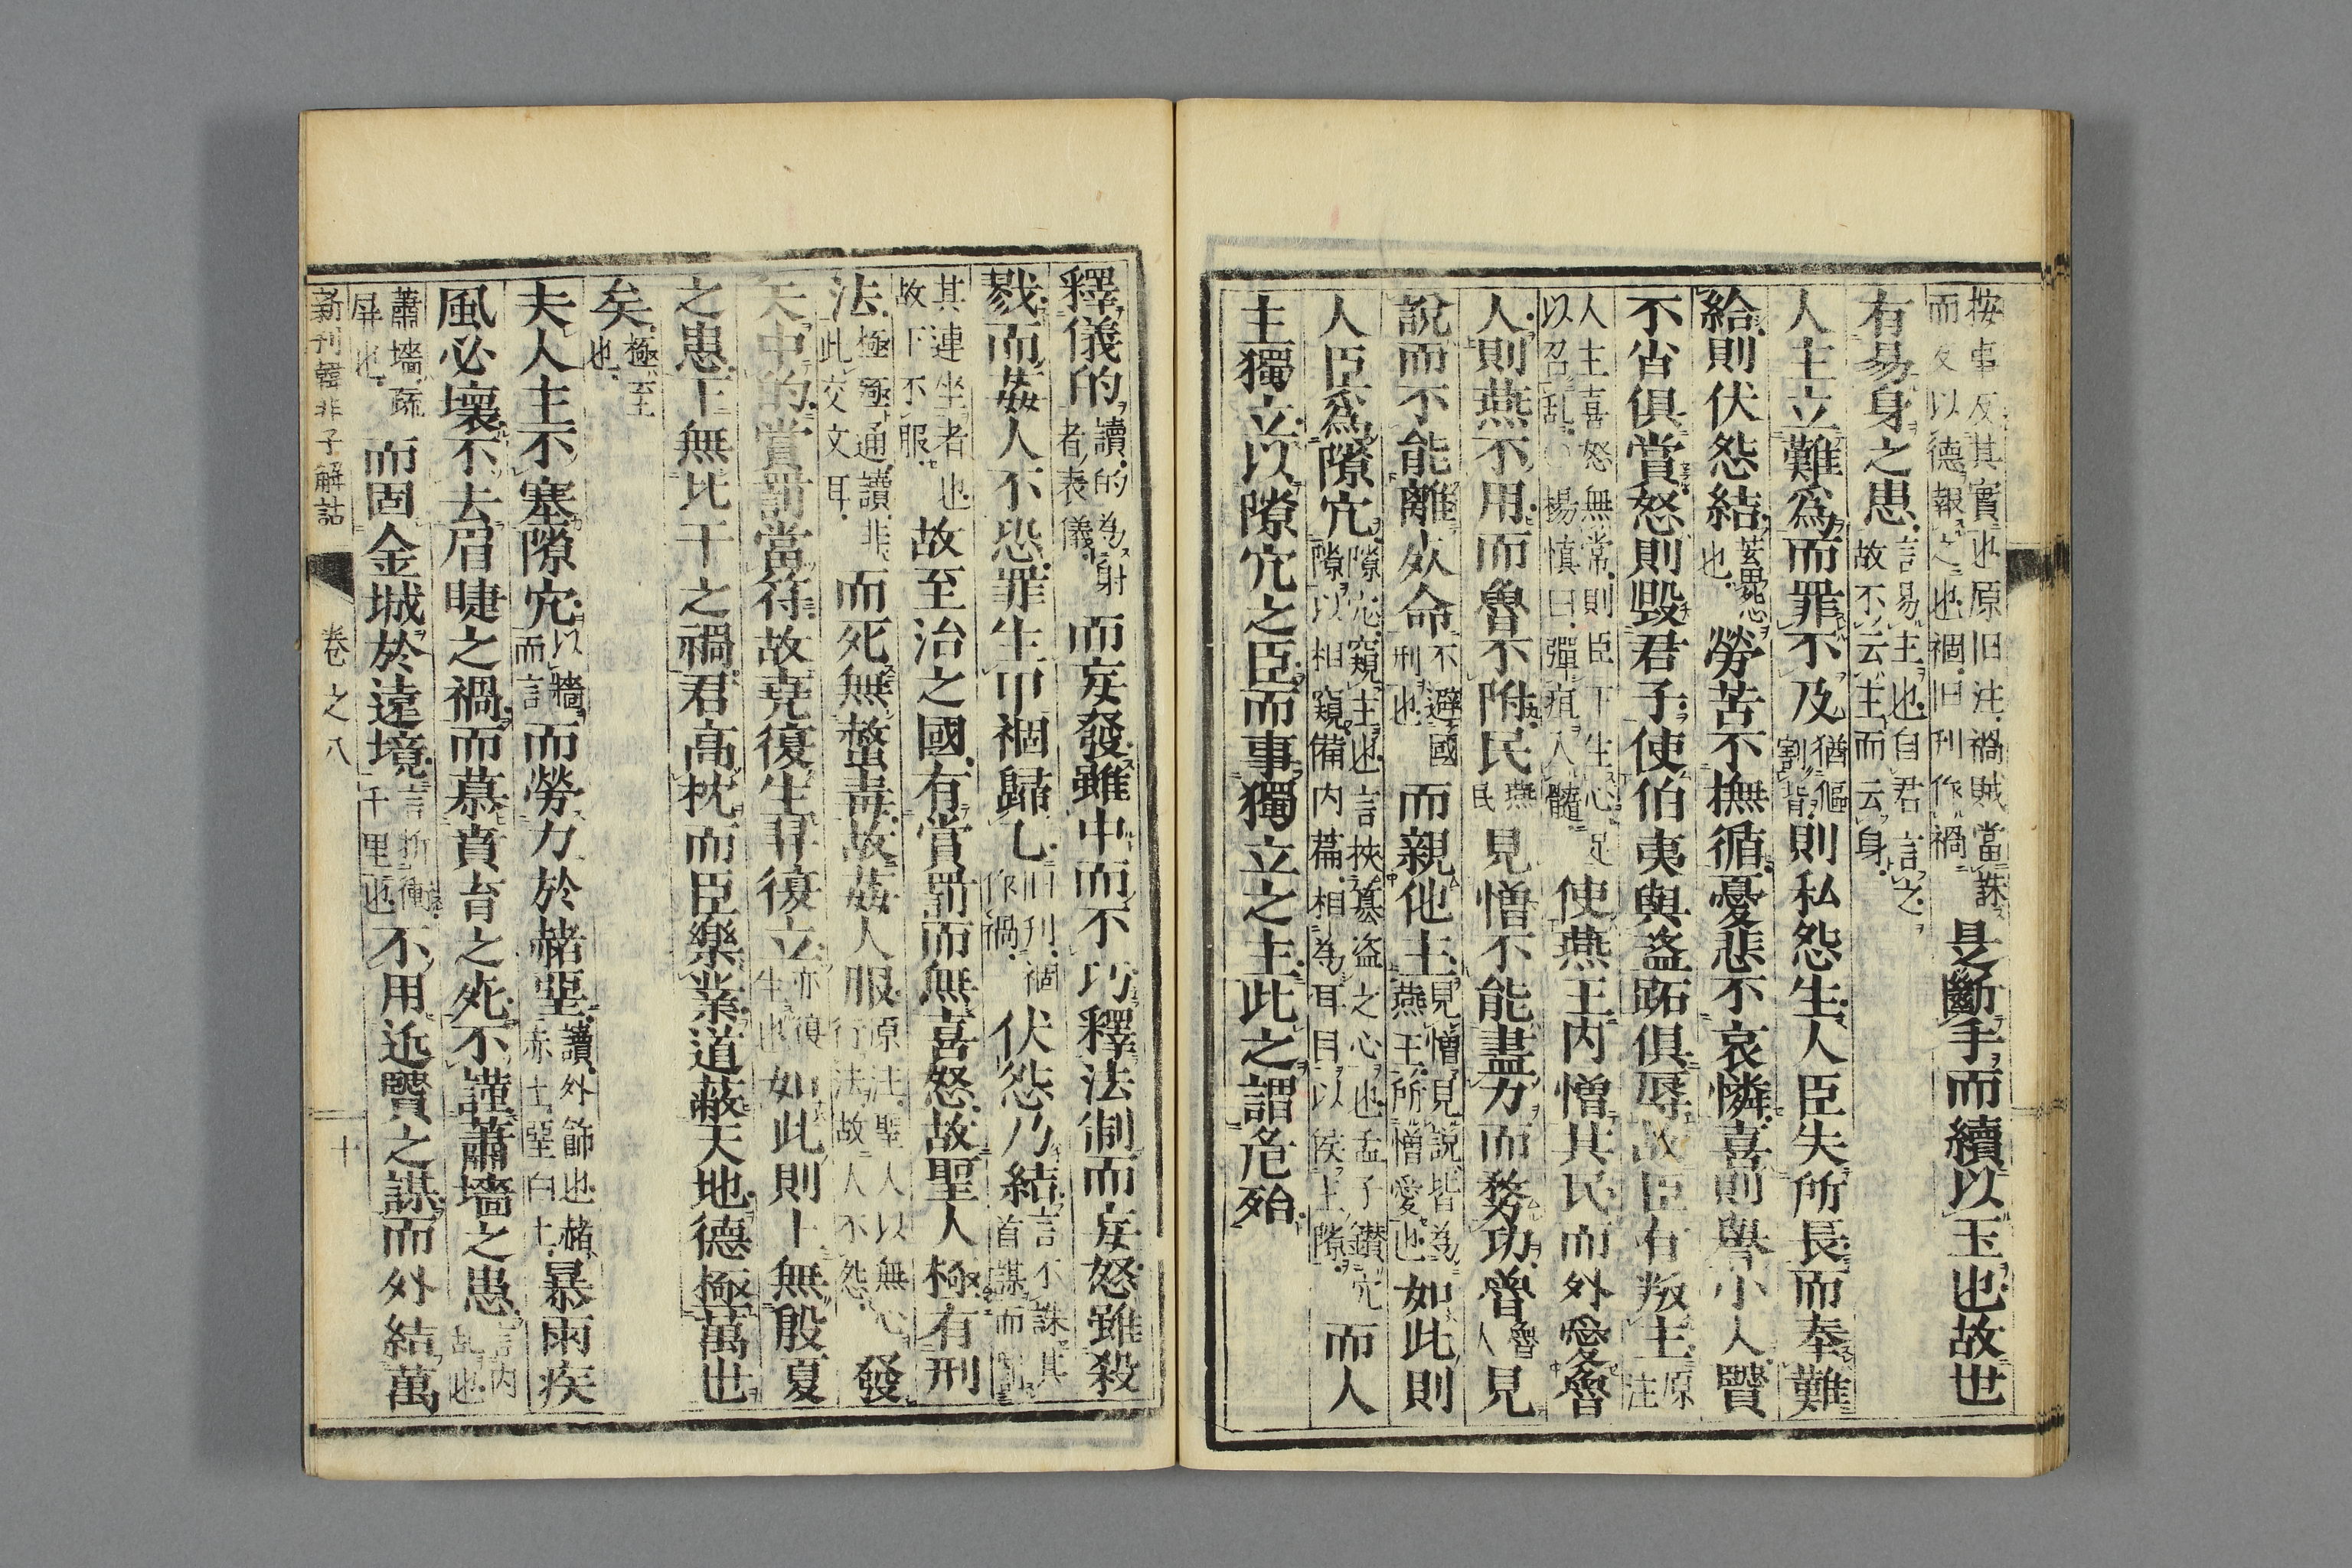 按事反其實也原旧注禍賊當誅
而反以德報之也禍旧刊作禍
是斷手而續以玉也故世
有易身之患言易主也自君言之
故不云主而云身
人主立難爲而罪不及猶傴
割背則私怨生人臣失所長而奉難
給則伏怨結
也勞苦不撫循憂悲不哀憐喜則譽小人賢
不肖俱賞怒則毀君子使伯夷與盜跖俱辱故臣有叛主原
注
人主喜怒無常則臣下生心足
以召乱楊慎曰彈疽入髓使燕王內憎其民而外愛魯
人則燕不用而魯不附民燕
民見憎不能盡力而務功魯魯
人見
說而不能離死命不避國
刑也而親他主見憎見說皆為
燕王所憎愛也如此則
人臣爲隙穴隙穴窺主也言挾慕盜之心也孟子鑽穴
隙以相窺備內篇相為耳目以候主隙而人
主獨立以隙穴之臣而事獨立之主此之謂危殆
釋儀的讀的為射
者表儀而妄發雖中而不巧釋法制而妄怒雖殺
戮而姦人不恐罪生甲禍歸乙旧刊禍
作禍伏怨乃結言不誅其
首謀而
其連坐者也
故下不服故至治之國有賞罰而無喜怒故聖人極有刑
法極極通讀非
此交文耳而死無螫毒故姦人服原注聖人以無心
行法故人不怨發
矢中的賞罰當符故堯復生羿復立亦復
生也如此則上無殷夏
之患下無比干之禍君高枕而臣樂業道蔽天地德極萬世
矣極至
也
夫人主不塞隙穴以牆
而言而勞力於赭堊讀外飾也赭
赤土堊白土暴雨疾
風必壞不去眉睫之禍而慕賁育之死不謹蕭墻之患言内
乱也
蕭墻疏
屏也而固金城於遠境言折衝
千里也不用近賢之謀而外結萬
新刊韓非子解詁 卷之八 十